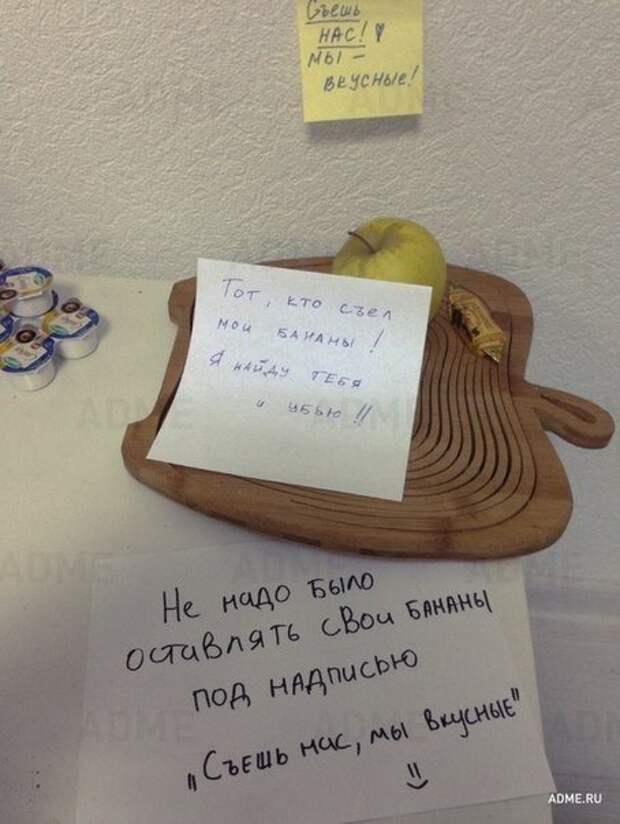 Съешь
нас! ♥
мы –
вкусные!
Тот, кто съел
мои бананы!
Я найду тебя
и убью!!
Не надо было
оставлять свои бананы
под надписью
„Съешь нас, мы вкусные"
ADME.RU